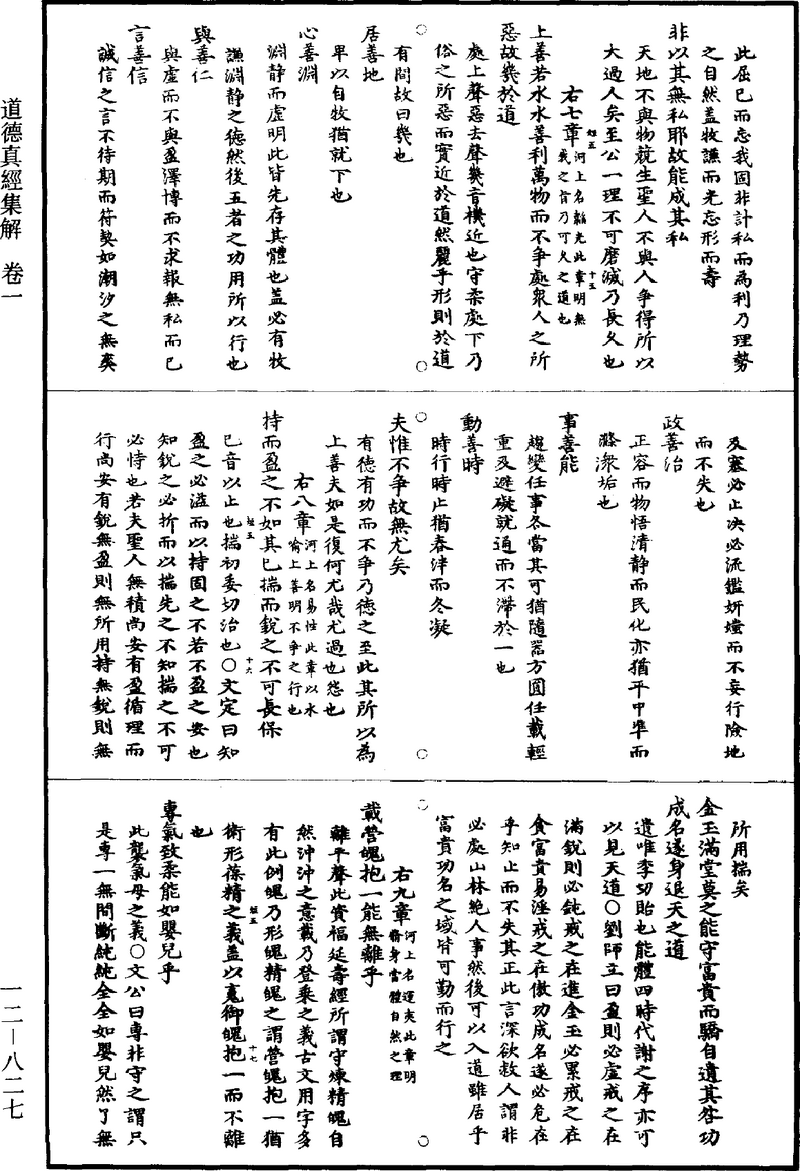 道德真經集解　卷一
此屈已而忘我固非計私而為利乃理勢
之自然盖牧謙而光忘形而壽
非以其無私耶故能成其私
天地不與物競生聖人不與人爭得所以
大過人矣至公一理不可磨滅乃長久也
右七章河上名韜光此章明無我之旨乃可久之道也
短五
十五
上善若水水善利萬物而不爭處衆人之所
惡故幾於道
處上聲惡去聲幾音機近也守柔處下乃
俗之所惡而實近於道然麗乎形則於道
有間故曰幾也
居善地
卑以自牧猶就下也
心善淵
淵静而虛明此皆先存其體也盖必有牧
謙淵静之徳然後五者之功用所以行也
與善仁
與虛而不與盈澤博而不求報無私而已
言善信
誠信之言不待期而符契如潮汐之無爽
及塞必止决必流鑑妍媸而不妄行險地
而不失也
政善治
正容而物悟清静而民化亦猶平中準而
滌濊垢也
事善能
趨變任事各當其可猶隨器方圓任載輕
重及避礙就通而不滯於一也
動善時
時行時止猶春泮而冬凝
夫惟不爭故無尤矣
有徳有功而不爭乃徳之至此其所以為
上善夫如是復何尤哉尤過也怨也
右八章河上名易性此章以水喻上善明不爭之行也
持而盈之不如其已揣而銳之不可長保
短五
十六
已音以止也揣初委切治也○文定曰知
盈之必溢而以持固之不若不盈之安也
知銳之必折而以揣先之不知揣之不可
必恃也若夫聖人無積尚安有盈循理而
行尚安有銳無盈則無所用持無銳則無
所用揣矣
金玉滿堂莫之能守富貴而驕自遺其咎功
成名遂身退天之道
遺唯季切貽也能體四時代謝之序亦可
以見天道○劉師立曰盈則必虛戒之在
滿銳則必鈍戒之在進金玉必累戒之在
貪富貴易淫戒之在傲功成名遂必危在
乎知止而不失其正此言深欲救人謂非
必處山林絶人事然後可以入道雖居乎
富貴功名之域皆可勤而行之
右九章河上名運夷此章明脩身當體自然之理
載營魄抱一能無離乎
離平聲此實福延壽經所謂守煉精魄自
然沖沖之意載乃登乘之義古文用字多
有此例魄乃形魄精魄之謂營魄抱一猶
衛形葆精之義盖以䰟御魄抱一而不離
短五
十七
也
專氣致柔能如嬰兒乎
此襲氣母之義○文公曰專非守之謂只
是專一無間斷純純全全如嬰兒然了無
一二—八二七